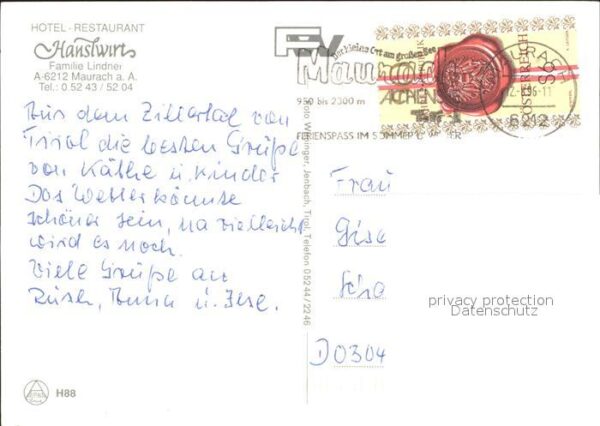 HOTEL - RESTAURANT
Hanslwirt
Familie Lindner
A-6212 Maurach a. A.
Tel.: 0 52 43 / 52 04
Aus dem Zillertal von
Tirol die besten Grüße
von Käthe u. Kinder
Das Wetter könnte
schöner sein, na vielleicht
wird es noch.
Viele Grüße an
Anna u. Ilse.
H88
Jenbach, Tirol, Telefon 05244/2246
der kleine Ort am großen See
Maurach
ACHENSEE
950 bis 2300 m
FERIENSPASS IM SOMMER
ÖSTERREICH
6212
Frau
D0304
privacy protection
Datenschutz